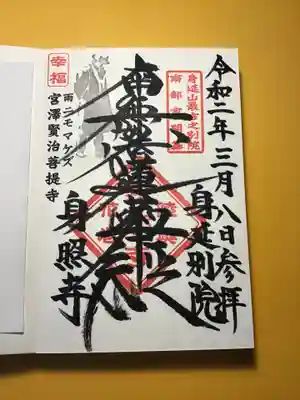 令和二年三月八日参拝
身延山最古之別院
身延別院
南無妙法蓮華経
身照寺
幸福
雨ニモマケズ
宮澤賢治菩提寺